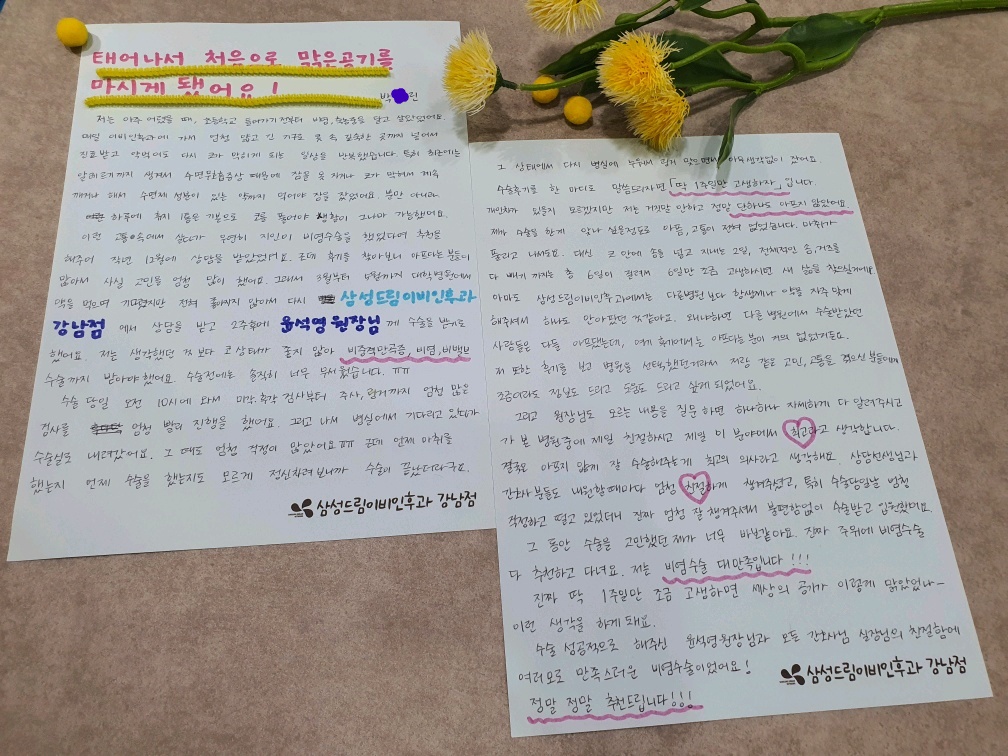 태어나서 처음으로 맑은공기를
마시게 됐어요!
박 린
저는 아주 어렸을 때, 초등학교 들어가기 전부터 비염, 축농증을 달고 살았었어요.
매일 이비인후과에 가서 엄청 얇고 긴 기구로 콧 속 깊숙한 곳까지 넣어서
진료받고 약먹어도 다시 코가 막히게 되는 일상을 반복했습니다. 특히 최근에는
알레르기까지 생겨서 수면무호흡증상 때문에 잠을 못 자거나 코가 막혀서 계속
깨거나 해서 수면제 성분이 있는 약까지 먹어야 잠을 잤었어요. 뿐만 아니라
하루에 휴지 기본으로 코를 풀어야 생활이 그나마 가능했어요.
이런 고통속에서 살다가 우연히 지인이 비염수술을 했었다며 추천을
해주어 작년 12월에 상담을 받았었어요. 근데 후기를 찾아보니 아프다는 분들이
많아서 사실 고민을 엄청 많이 했어요. 그래서 3월부터 5월까지 대학병원에서
약을 먹으며 기다렸지만 전혀 좋아지지 않아서 다시 삼성드림이비인후과
강남점 에서 상담을 받고 2주후에 윤석영 원장님 께 수술을 받기로
했어요. 저는 생각했던 것 보다 코 상태가 좋지 않아 비중격만곡증, 비염, 비밸브
수술까지 받아야 했어요. 수술전에는 솔직히 너무 무서웠습니다. ㅠㅠ
수술 당일 오전 10시에 와서 미각, 후각 검사부터 주사, 링거까지 엄청 많은
검사를 엄청 빨리 진행을 했어요. 그리고 나서 병실에서 기다리고 있다가
수술실로 내려갔어요. 그 때도 엄청 걱정이 많았어요ㅠㅠ 근데 언제 마취를
했는지 언제 수술을 했는지도 모르게 정신차려보니까 수술이 끝났더라구요.
삼성드림이비인후과 강남점
그 상태에서 다시 병실에 누워서 링거 맞으면서 아무생각없이 잤어요.
수술후기를 한 마디로 말씀드리자면 「딱 1주일만 고생하자」입니다.
개인차가 있을지 모르겠지만 저는 거짓말 안하고 정말 단하나도 아프지 않았어요
제가 수술을 한게 맞나 싶을정도로 아픔, 고통이 전혀 없었습니다. 마취가
풀리고 나서도요. 대신 코 안에 솜을 넣고 지내는 2일, 전체적인 솜, 거즈를
다 빼기 까지는 총 6일이 걸려서 6일만 조금 고생하시면 새 삶을 찾으실거에요
아마도 삼성드림이비인후과에서는 다른병원 보다 항생제나 약을 자주 맞게
해주셔서 하나도 안아팠던 것같아요. 왜냐하면 다른 병원에서 수술받았던
사람들은 다들 아프댔는데, 여기 후기에서는 아프다는 분이 거의 없었거든요.
저 또한 후기를 보고 병원을 선택했던거라서 저랑 같은 고민, 고통을 겪으신 분들에게
조금이라도 정보도 드리고 도움도 드리고 싶게 되었어요.
그리고 원장님도 모르는 내용을 질문 하면 하나하나 자세하게 다 알려주시고
가 본 병원중에 제일 친절하시고 제일 이 분야에서 최고라고 생각합니다.
결국은 아프지 않게 잘 수술해주는게 최고의 의사라고 생각해요. 상담선생님과
간호사 분들도 내원할때마다 엄청 친절하게 챙겨주셨고, 특히 수술당일날 엄청
걱정하고 떨고 있었더니 진짜 엄청 잘 챙겨주셔서 불편함없이 수술받고 입원했어요.
그 동안 수술을 고민했던 제가 너무 바보같아요. 진짜 주위에 비염수술
다 추천하고 다녀요. 저는 비염수술 대만족입니다!!!
진짜 딱 1주일만 조금 고생하면 세상의 공기가 이렇게 맑았었나~
이런 생각을 하게 돼요.
수술 성공적으로 해주신 윤석영원장님과 모든 간호사님 실장님의 친절함에
여러모로 만족스러운 비염수술이었어요!
삼성드림이비인후과 강남점
정말 정말 추천드립니다!!!